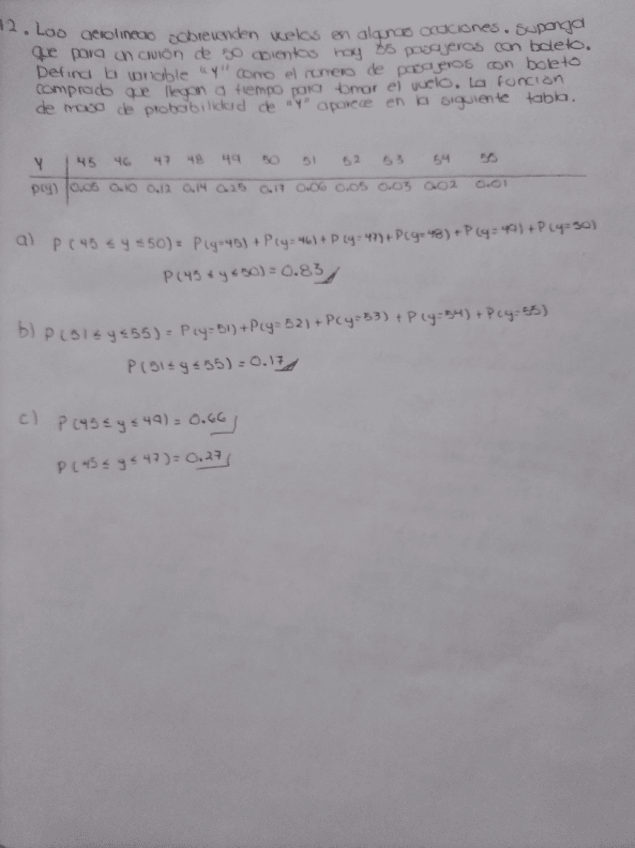 12. Las aerolineas sobrevenden vuelos en algunas ocaciones. Suponga
que para un avión de 50 asientos hay 55 pasajeros con boleto.
Defina la variable "Y" como el numero de pasajeros con boleto
comprado que llegan a tiempo para tomar el vuelo. La función
de masa de probabilidad de "Y" aparece en la siguiente tabla.
Y 45 46 47 48 49 50 51 52 53 54 55
p(y) 0.05 0.10 0.12 0.14 0.25 0.17 0.06 0.05 0.03 0.02 0.01
a) P(45 ≤ y ≤ 50) = P(y=45) + P(y=46) + P(y=47) + P(y=48) + P(y=49) + P(y=50)
P(45 ≤ y ≤ 50) = 0.83
b) P(51 ≤ y ≤ 55) = P(y=51) + P(y=52) + P(y=53) + P(y=54) + P(y=55)
P(51 ≤ y ≤ 55) = 0.17
c) P(45 ≤ y ≤ 49) = 0.66
P(45 ≤ y ≤ 47) = 0.27